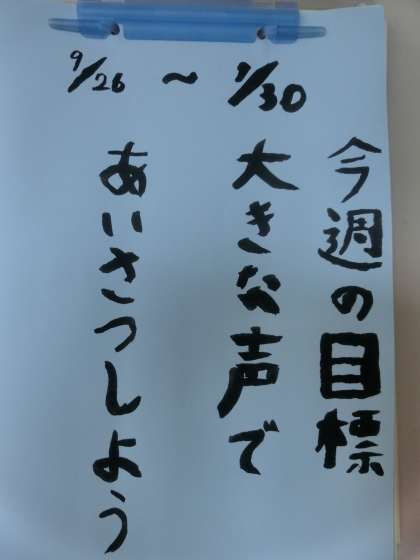 9/26 ～ 9/30
今週の目標
大きな声で
あいさつしよう